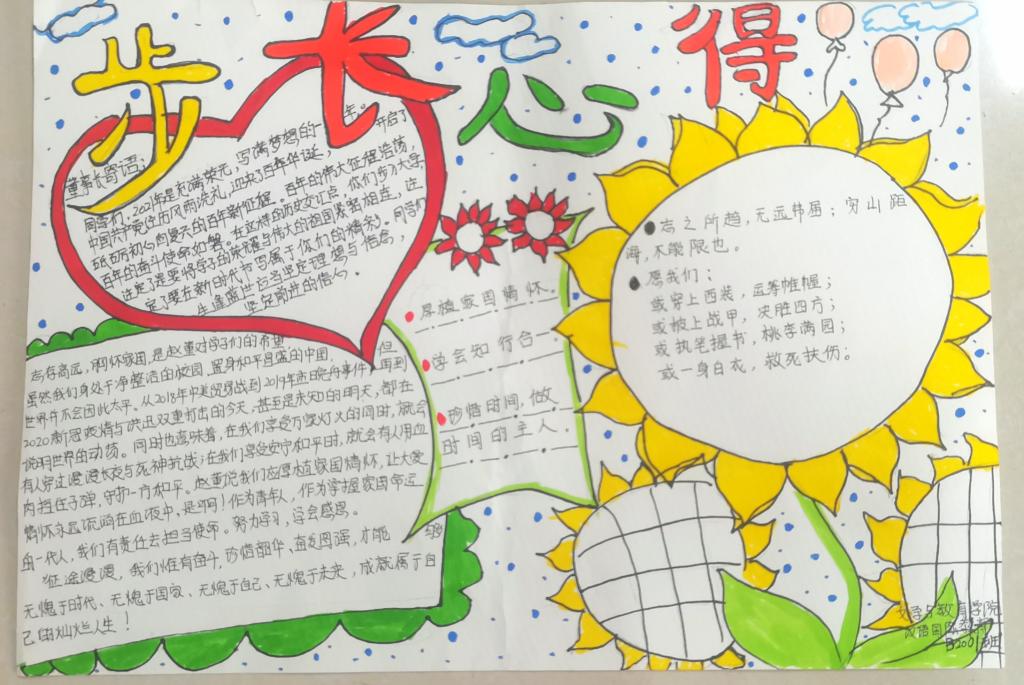 步长心得
董事长寄语:
同学们:2021年是充满荣光,写满梦想的一年。
中国共产党历经风雨洗礼,迎来了百年华诞,开启了
砥砺初心向复兴的百年新征程。百年的伟大征程浩荡,
百年的奋斗使命如磐。在这样的历史交汇点,你们步入大学,
注定了是要将学习的荣耀与伟大的祖国紧密相连,注
定了要在新时代书写属于你们的精彩。同学们
坚定前进的信心。
志存高远,胸怀家国,是赵董对学子们的希望
虽然我们身处于净整洁的校园,置身和平昌盛的中国,但
世界并不会因此太平。从2018年中美贸易战到2019年
2020新冠疫情与洪汛双重打击的今天,甚至是未知的明天,都在
说明世界的动荡。同时也意味着,在我们享受万家灯火的同时,就会
有人穿过漫漫长夜与死神抗战;在我们享受安宁和平时,就会有人用血
肉挡住子弹,守护一方和平。赵董说我们应厚植家国情怀,让大爱
情怀永远流淌在血液中,是啊!作为青年人,作为掌握家国命运
的一代人,我们有责任去担当使命。努力学习,学会感恩。
征途漫漫,我们惟有奋斗,珍惜韶华、奋发图强,才能够
无愧于时代、无愧于国家、无愧于自己、无愧于未来,成就属于自
己的灿烂人生!
厚植家国情怀。
学会知行合一。
珍惜时间,做
时间的主人。
志之所趋,无远弗届;穷山距
海,不能限也。
愿我们;
或穿上西装,运筹帷幄;
或披上战甲,决胜四方;
或执笔握书,桃李满园;
或一身白衣,救死扶伤。
文学与教育学院
汉语国际教育
B2001班